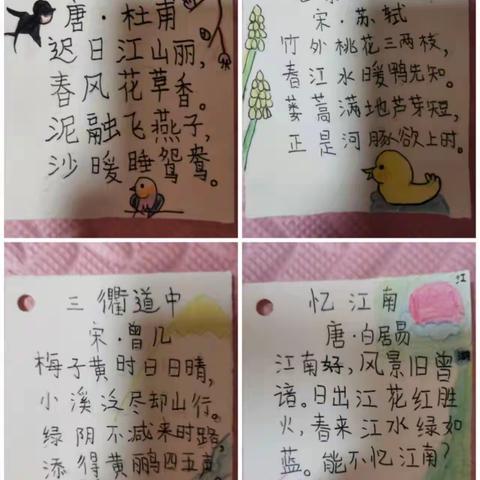 唐·杜甫
迟日江山丽，
春风花草香。
泥融飞燕子，
沙暖睡鸳鸯。
宋·苏轼
竹外桃花三两枝，
春江水暖鸭先知。
蒌蒿满地芦芽短，
正是河豚欲上时。
三衢道中
宋·曾几
梅子黄时日日晴，
小溪泛尽却山行。
绿阴不减来时路，
添得黄鹂四五声
江
忆江南
唐·白居易
江南好，风景旧曾
谙。日出江花红胜
火，春来江水绿如
蓝。能不忆江南？